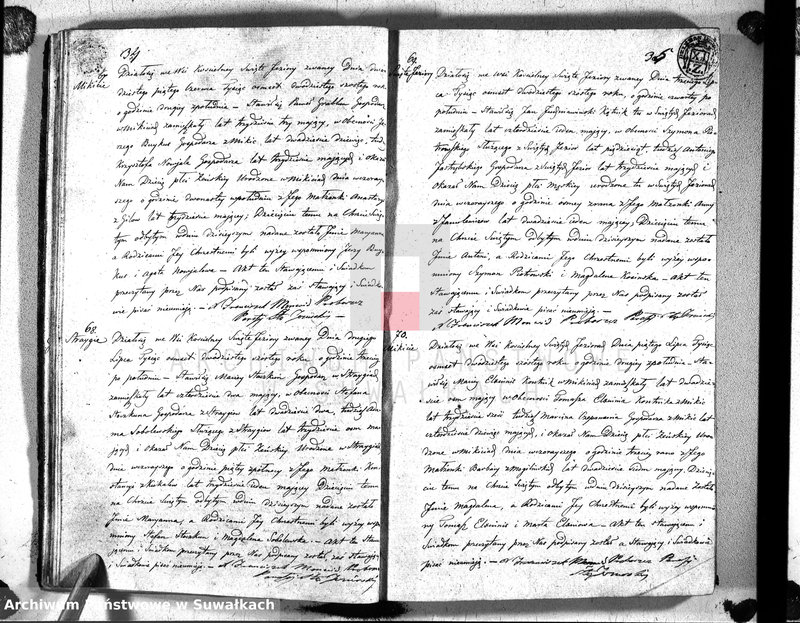 34
67.
Mikicie
Działo się we Wsi Kościelney Święte Jeziory zwaney Dnia dwu
dziestego piątego Czerwca Tysiąc osmset dwudziestego szostego roku
o godzinie drugiey z południa - Stawił się Paweł Gospodarz
w Mikiciach zamieszkały lat trzydzieście trzy maiący, w obecności Je
rzego Buykus Gospodarza z Mikić, lat dwadzieścia dziewięć, tudzież
Krzysztofa Nowiala Gospodarza lat trzydzieście maiących i okazał
Nam Dziecię płci Żeńskiey Urodzone w Mikiciach dnia wczoray
szego o godzinie dwunasty w południe z Jego Małżonki Anastazyi
z lat trzydzieście maiącey; Dziecięciu temu na Chrzcie Świę
tym odbytym w dniu dzisieyszym nadane zostało Imie Maryanna
a Rodzicami Jey Chrzestnemi byli wyżey wspomniony Jerzy Buy
kus i Agata Nowialowa - Akt ten Stawiącemu i Świadkom
przeczytany przez Nas podpisany został zaś stawaiący i Świadko
wie pisać nieumieią. - X Franciszek Moncwid Proboszcz
Parafij Sto Jeziorskiey
68.
Straygie
Działo się we Wsi Kościelney Święte Jeziory zwaney Dnia drugiego
Lipca Tysiąc osmset dwudziestego szostego roku o godzinie trzeciey
po południu - Stawił się Maciey Gospodarz w Straygiach
zamieszkały lat czterdzieście dwa maiący, w obecności Stefana
Gospodarza z Straygiow lat dwadzieścia dwa, tudzież Ada
ma Sobolewskiego Służącego z Straygiow lat trzydzieście osm ma
iących, i okazał Nam Dziecię płci Żeńskiey Urodzone w Straygiach
dnia wczorayszego o godzinie piąty z Jego Małżonki Kon
stancyi lat trzydzieście ieden maiącey Dziecięciu temu
na Chrzcie Świętym odbytym w dniu dzisieyszym nadane zostało
Imie Maryanna, a Rodzicami Jey Chrzestnemi byli wyżey wspo
mniony Stefan i Magdalena Sobolewska - Akt ten Sta
wiącemu i Świadkom przeczytany przez Nas podpisany został zaś stawaiący
i Świadkowie pisać nieumieią. - X Franciszek Moncwid Proboszcz
Parafij Sto Jeziorskiey
35
69.
Święte Jeziory
Działo się we Wsi Kościelney Święte Jeziory zwaney Dnia trzeciego Lip
ca Tysiąc osmset dwudziestego szostego roku, o godzinie czwarty po
południu - Stawił się Jan Kątnik w Świętych Jeziorach
zamieszkały lat czterdzieście ieden maiący, w obecności Szymona Pio
trowskiego Służącego z Świętych Jezior lat piędziesiąt, tudzież Antoniego
Gospodarza z Świętych Jezior lat trzydzieście maiących i
okazał Nam Dziecię płci Męskiey urodzone tu w Świętych Jeziorach
dnia wczorayszego o godzinie osmey zrana z Jego Małżonki Anny
lat dwadzieścia ieden maiącey; Dziecięciu temu
na Chrzcie Świętym odbytym w dniu dzisieyszym nadane zostało
Imie Antoni, a Rodzicami Jego Chrzestnemi byli wyżey wspo
mniony Szymon Piotrowski i Magdalena Kosinska - Akt ten
Stawiącemu i Świadkom przeczytany przez Nas podpisany został
zaś stawaiący i Świadkowie pisać nieumieią. -
X Franciszek Moncwid Proboszcz Parafij Sto Jeziorskiey
70.
Mikicie
Działo się we Wsi Kościelney Świętych Jeziorach Dnia piątego Lipca Tysiąc
osmset dwudziestego szostego roku o godzinie drugiey z południa - Sta
wił się Maciey Kątnik w Mikiciach zamieszkały lat dwadzie
ścia osm maiący w obecności Tomasza Kątnika z Mikić
lat trzydzieście sześć tudzież Marcina Gospodarza z Mikić lat
czterdzieście dziewięć maiących, i okazał Nam Dziecię płci Żeńskiey Uro
dzone w Mikiciach dnia wczorayszego o godzinie trzeciey zrana z Jego
Małżonki Barbary lat dwadzieścia ieden maiącey. Dzie
cięciu temu na Chrzcie Świętym odbytym w dniu dzisieyszym nadane zostało
Imie Magdalena, a Rodzicami Jey Chrzestnemi byli wyżey wspomnio
ny Tomasz i Marta - Akt ten stawiącemu i
Świadkom przeczytany przez Nas podpisany został a Stawaiący i Świadkowie
pisać nieumieią. - X Franciszek Moncwid Proboszcz Parafij
Sto Jeziorskiey
ARCHIWUM PAŃSTWOWE
W SUWAŁKACH
Archiwum Państwowe w Suwałkach